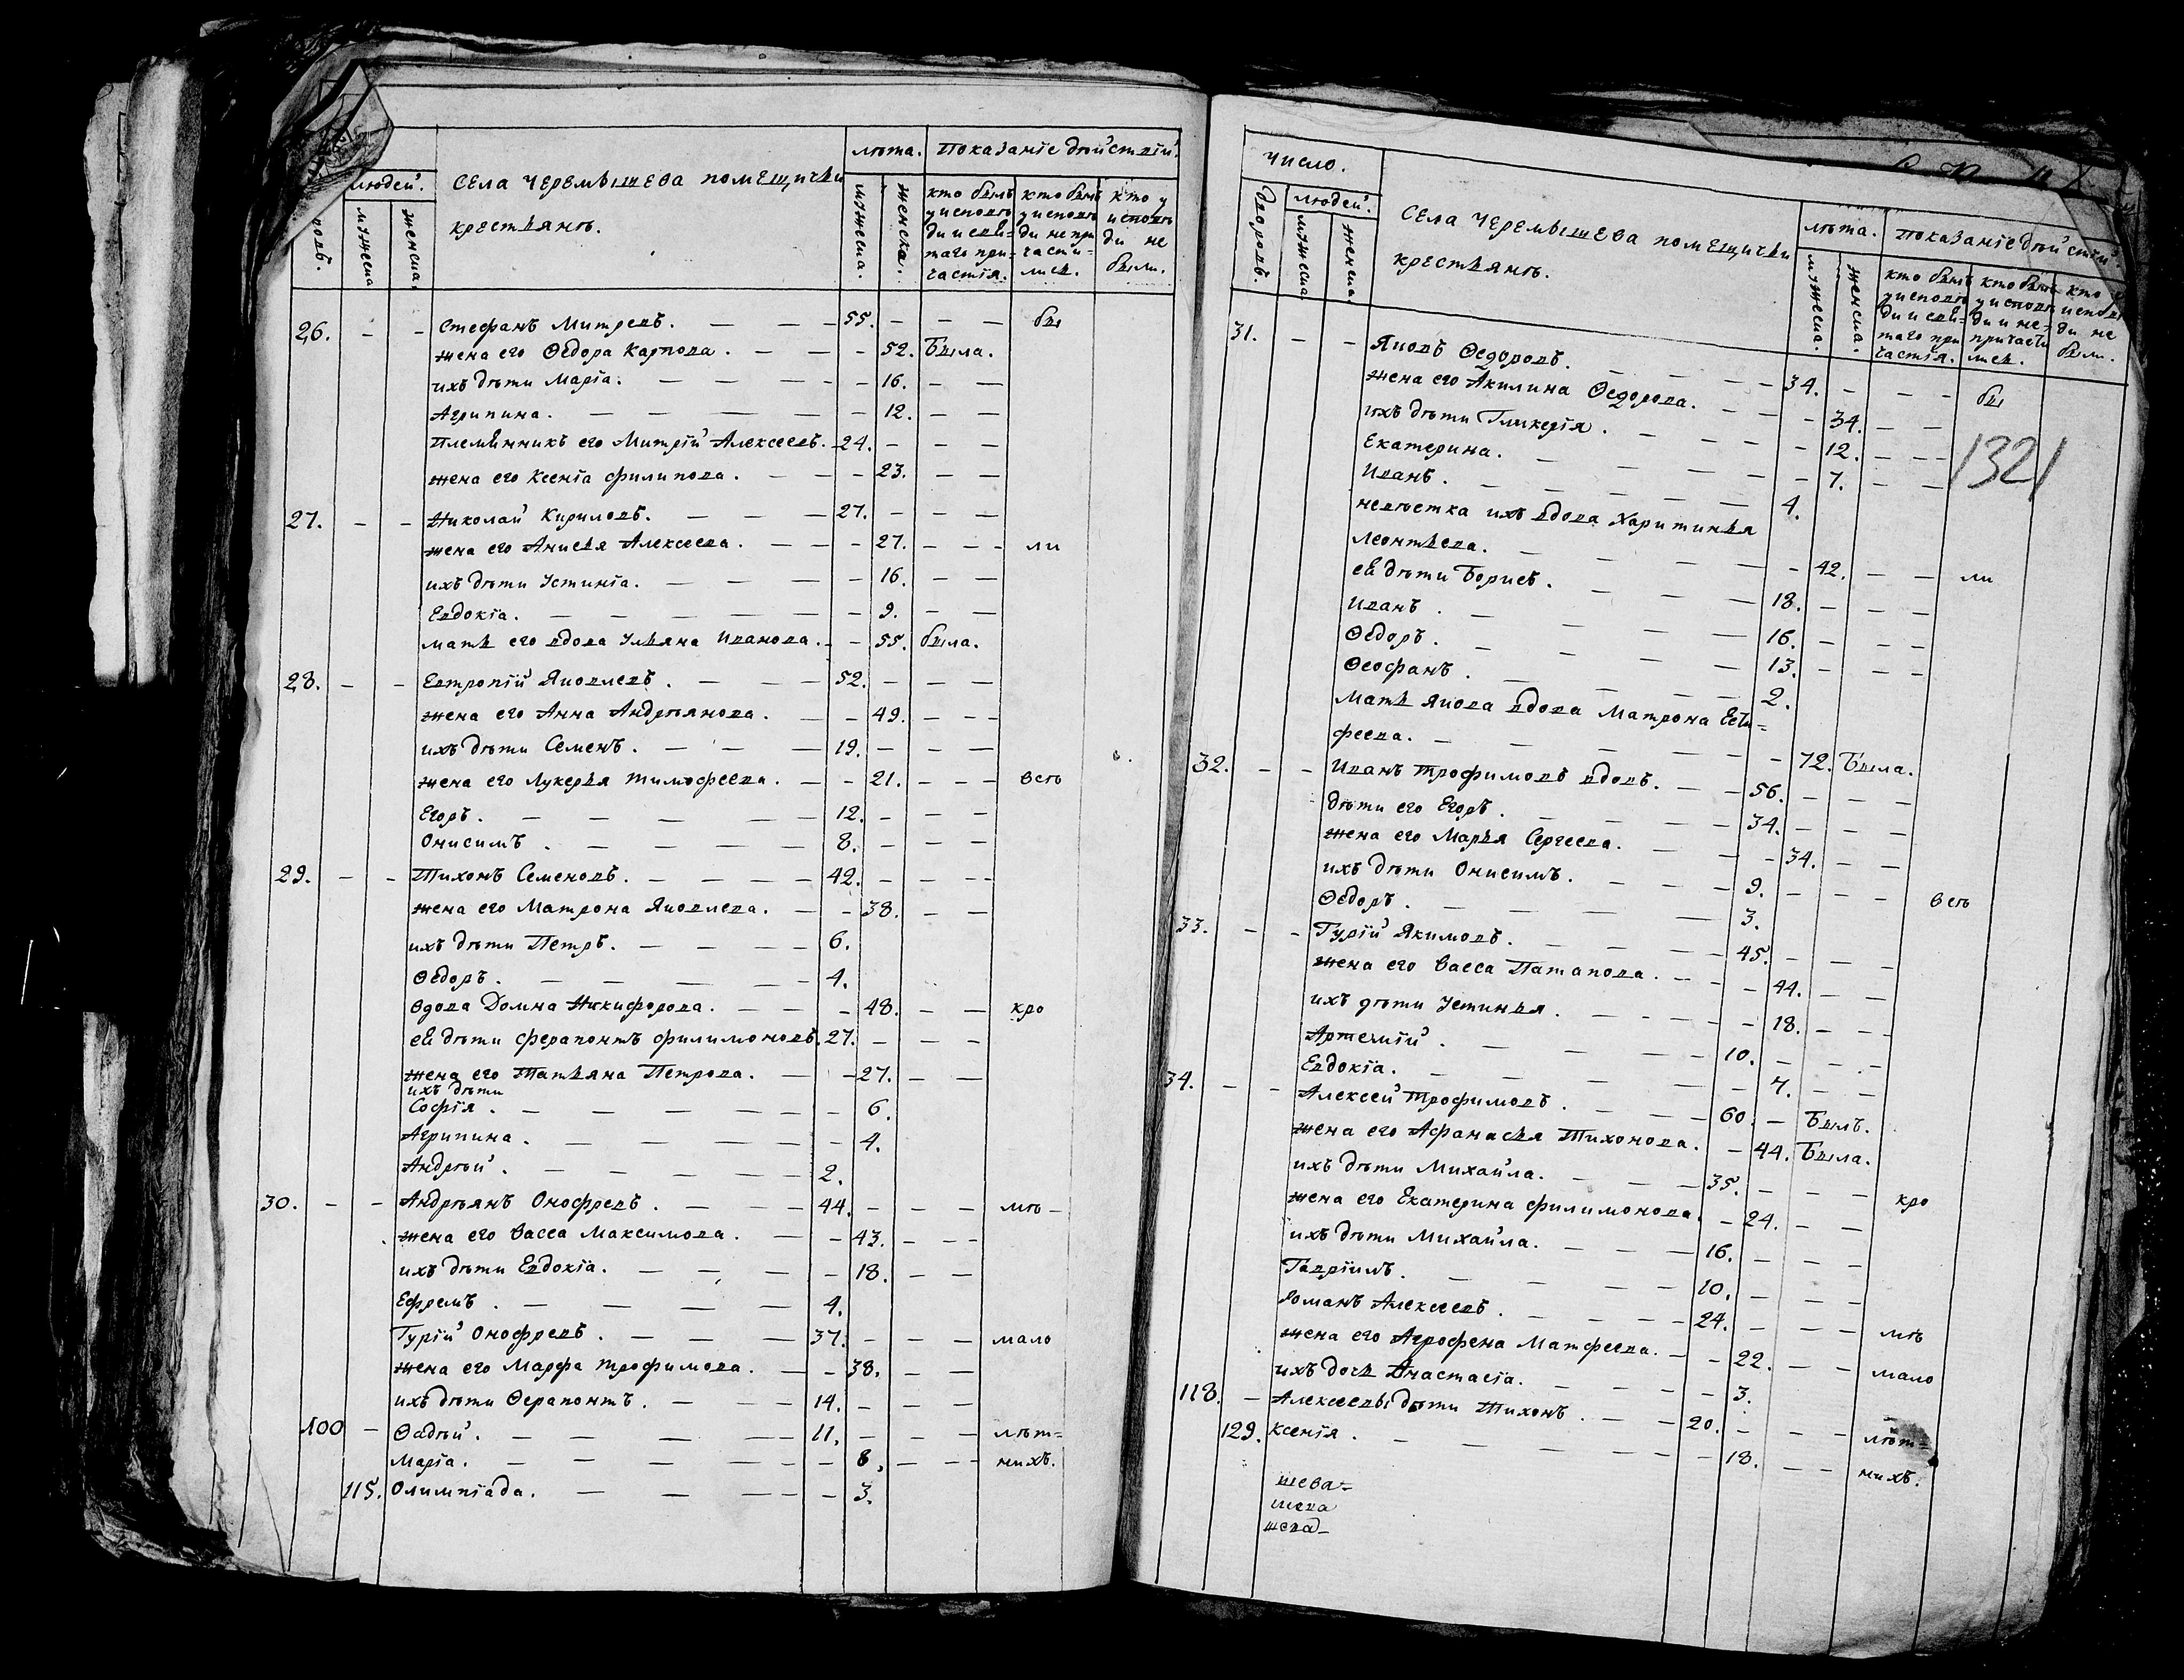 людей.
дворовъ.
мужеска
женска.
СЕЛА ЧЕРЕМЫШЕВА ПОМЕЩИЧЬИ
крестьянъ.
лѣта.
мужеска.
женска.
Показаніе дѣйствій.
кто былъ у исповѣди и святаго причастія.
кто былъ у исповѣди не причастились.
кто у исповѣди не были.
26. – – Стефанъ Митревъ. 55. – – – бы
жена его Ѳедора Карпова. – 52. Была.
ихъ дѣти Марія. – 16. – –
Агрипина. – 12. – –
Племянникъ его Митрій Алексеевъ. 24. – – –
жена его Ксенія Филипова. – 23. – –
27. – – Николай Кириловъ. 27. – – –
жена его Анисья Алексеева. – 27. – – – ли
ихъ дѣти Устинія. – 16. – –
Евдокія. – 9. – –
мать его вдова Ульяна Иванова. – 55. была.
28. – – Евтропій Яковлевъ. 52. – – –
жена его Анна Андреянова. – 49. – – –
ихъ дѣти Семенъ. 19. – – –
жена его Лукерья Тимофеева. – 21. – – – всѣ
Егоръ. 12. – – –
Онисимъ. 8. – – –
29. – – Тихонъ Семеновъ. 42. – – –
жена его Матрона Яковлева. – 38. – –
ихъ дѣти Петръ. 6.
Ѳедоръ. 4.
Вдова Домна Никифорова. – 48. – – кро
ея дѣти Ферапонтъ Филимоновъ. 27. – – –
жена его Татьяна Петрова. – 27. – –
ихъ дѣти
Софія. – 6.
Агрипина. – 4.
Андрѣй. 2.
30. – – Андрѣянъ Онофревъ. 44. – – – мѣ-
жена его Васса Максимова. – 43. – – –
ихъ дѣти Евдокія. – 18. – –
Ефремъ. 4.
Гурій Онофревъ. 37. – – – мало
жена его Марфа Трофимова. – 38. – –
ихъ дѣти Ѳерапонтъ. 14. – – –
100 – Ѳадѣй. 11. – – – лѣт=
Марія. – 8. – – – нихъ.
115. Олимпіада. – 3.
число.
дворовъ.
людей.
мужеска
женска
СЕЛА ЧЕРЕМЫШЕВА ПОМЕЩИЧЬИ
крестьянъ.
лѣта.
мужеска.
женска.
Показаніе дѣйствій.
кто былъ у исповѣди и святаго причастія.
кто былъ у исповѣди и не причастились.
кто у исповѣди не были.
1321
31. – – Яковъ Ѳедоровъ. 34. – – – бы
жена его Акилина Ѳедорова. – 34. – –
ихъ дѣти Гликерія. – 12. – – –
Екатерина. – 7. – –
Иванъ. 4.
невѣстка ихъ вдова Харитинья
Леонтьева. – 42. – – ли
ея дѣти Борисъ. 18. – – –
Иванъ. 16. – – –
Ѳедоръ. 13. – – –
Ѳеофанъ. 2.
Мать Якова вдова Матрона Евти=
феева. – 72. Была.
32. – – Иванъ Трофимовъ вдовъ. 56. – – –
дѣти его Егоръ. 34. – – –
жена его Марья Сергеева. – 34. – –
ихъ дѣти Онисимъ. 9. – – – всѣ
Ѳедоръ. 3.
33. – – Гурій Якимовъ. 45. – – –
жена его Васса Патапова. – 44. – –
ихъ дѣти Устинья. – 18. – – –
Артемій. 10. – – –
Евдокія. – 7. – –
34. – – Алексей Трофимовъ. 60. – Былъ.
жена его Афанасья Тихонова. – 44. Была.
ихъ дѣти Михайла. 35. – – – кро
жена его Екатерина Филимонова. – 24. – –
ихъ дѣти Михайла. 16. – – –
Гавріилъ. 10. – – –
Романъ Алексеевъ. 24. – – – мѣ
жена его Агрофена Матфеева. – 22. – – мало
ихъ дочь Анастасія. – 3.
118. – Алексеевы дѣти Тихонъ. 20. – – – лѣт=
129. Ксенія. – 18. – – нихъ.